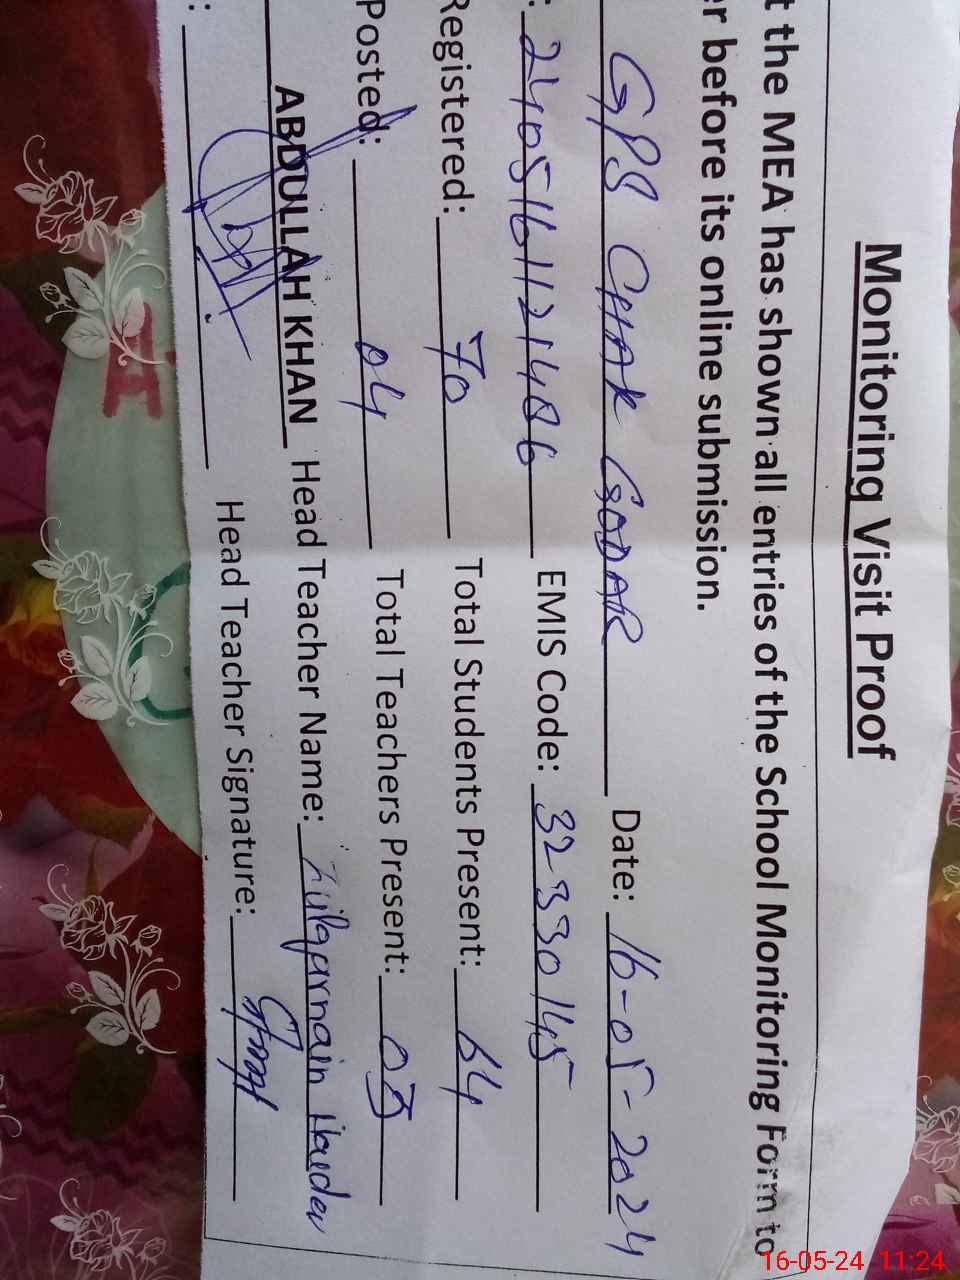 Monitoring Visit Proof
t the MEA has shown all entries of the School Monitoring Form to
er before its online submission.
GPS CHAK GODAR Date: 16-05-2024
: 2405161121486 EMIS Code: 32330145
Registered: 70 Total Students Present: 64
Posted: 04 Total Teachers Present: 03
ABDULLAH KHAN Head Teacher Name: Zulqarnain Haider
: Head Teacher Signature:
16-05-24 11:24